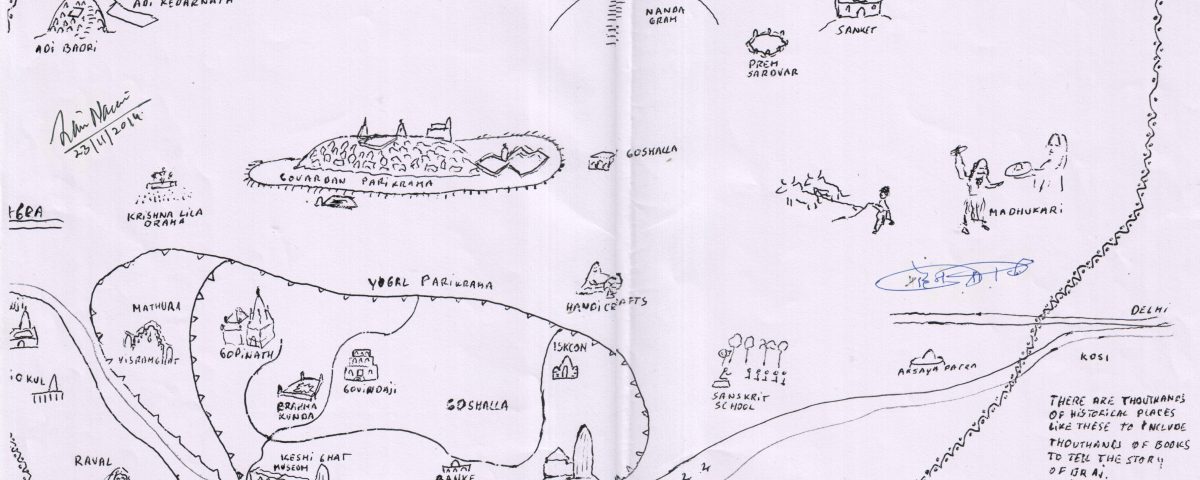 ADI KEDARNATH
ADI BADRI
NANDA
GRAM
SANKET
PREM
SAROVAR
23/11/2014
GOSHALLA
GOVARDAN PARIKRAMA
KRISHNA LILA
DRAMA
AGRA
MADHUKARI
YUGAL PARIKRAMA
HANDICRAFTS
MATHURA
VISRAMGHAT
GOPINATH
GOVINDAJI
BRAHMA
KUNDA
GOSHALLA
ISKCON
SANSKRIT
SCHOOL
AKSAYA PATRA
DELHI
KOSI
OKUL
RAVAL
KESHI GHAT
MUSEUM
BANKE
THERE ARE THOUTHANDS
OF HISTORICAL PLACES
LIKE THESE TO INCLUDE
THOUTHANDS OF BOOKS
TO TELL THE STORY
OF BRAJ.